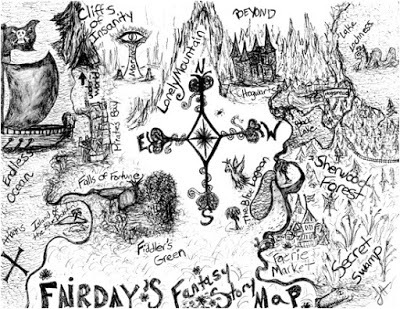 Cliffs
of
Insanity
BEYOND
Lake
Lonely Mountain
Hogwarts
N
E
W
S
Pirates Bay
Endless
Ocean
Falls of Fortune
Island
of the
Fiddler's
Green
The Blue Lagoon
Sherwood
Forest
Faerie
Market
Secret
Swamp
X
FAIRDAY'S Fantasy Story MAP